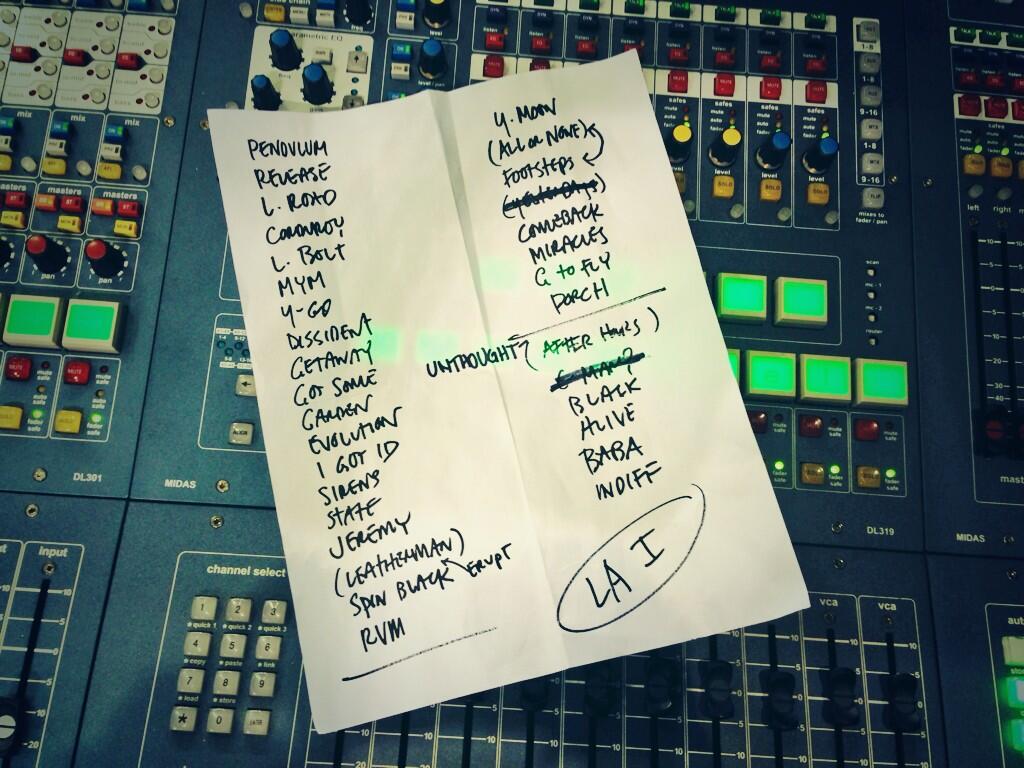 PENDULUM
RELEASE
L. ROAD
CORDUROY
L. BOLT
MYM
Y-GO
DISSIDENT
GETAWAY
GOT SOME
GARDEN
EVOLUTION
I GOT ID
SIRENS
STATE
JEREMY
(LEATHERMAN)
SPIN BLACK ERUPT
RVM
Y. MOON
(ALL OR NONE)
FOOTSTEPS
COMEBACK
MIRACLES
G TO FLY
PORCH
UNTHOUGHT (AFTER HOURS)
BLACK
ALIVE
BABA
INDIFF
LA I
parametric EQ
mix
mix
mix
masters
masters
masters
pan
pan
DL301
MIDAS
input
channel select
1 2 3
quick 1 quick 2 quick 3
4 5 6
copy paste link
7 8 9
load store
* 0 ENTER
ALIGN
listen
MUTE
safes
mute
auto
fader
level
SOLO
1-8
1-8
9-16
9-16
mixes to
fader / pan
left right
scan
mc - 1
mc - 2
router
mute
safe
fader
safe
DL319
MIDAS
vca
vca